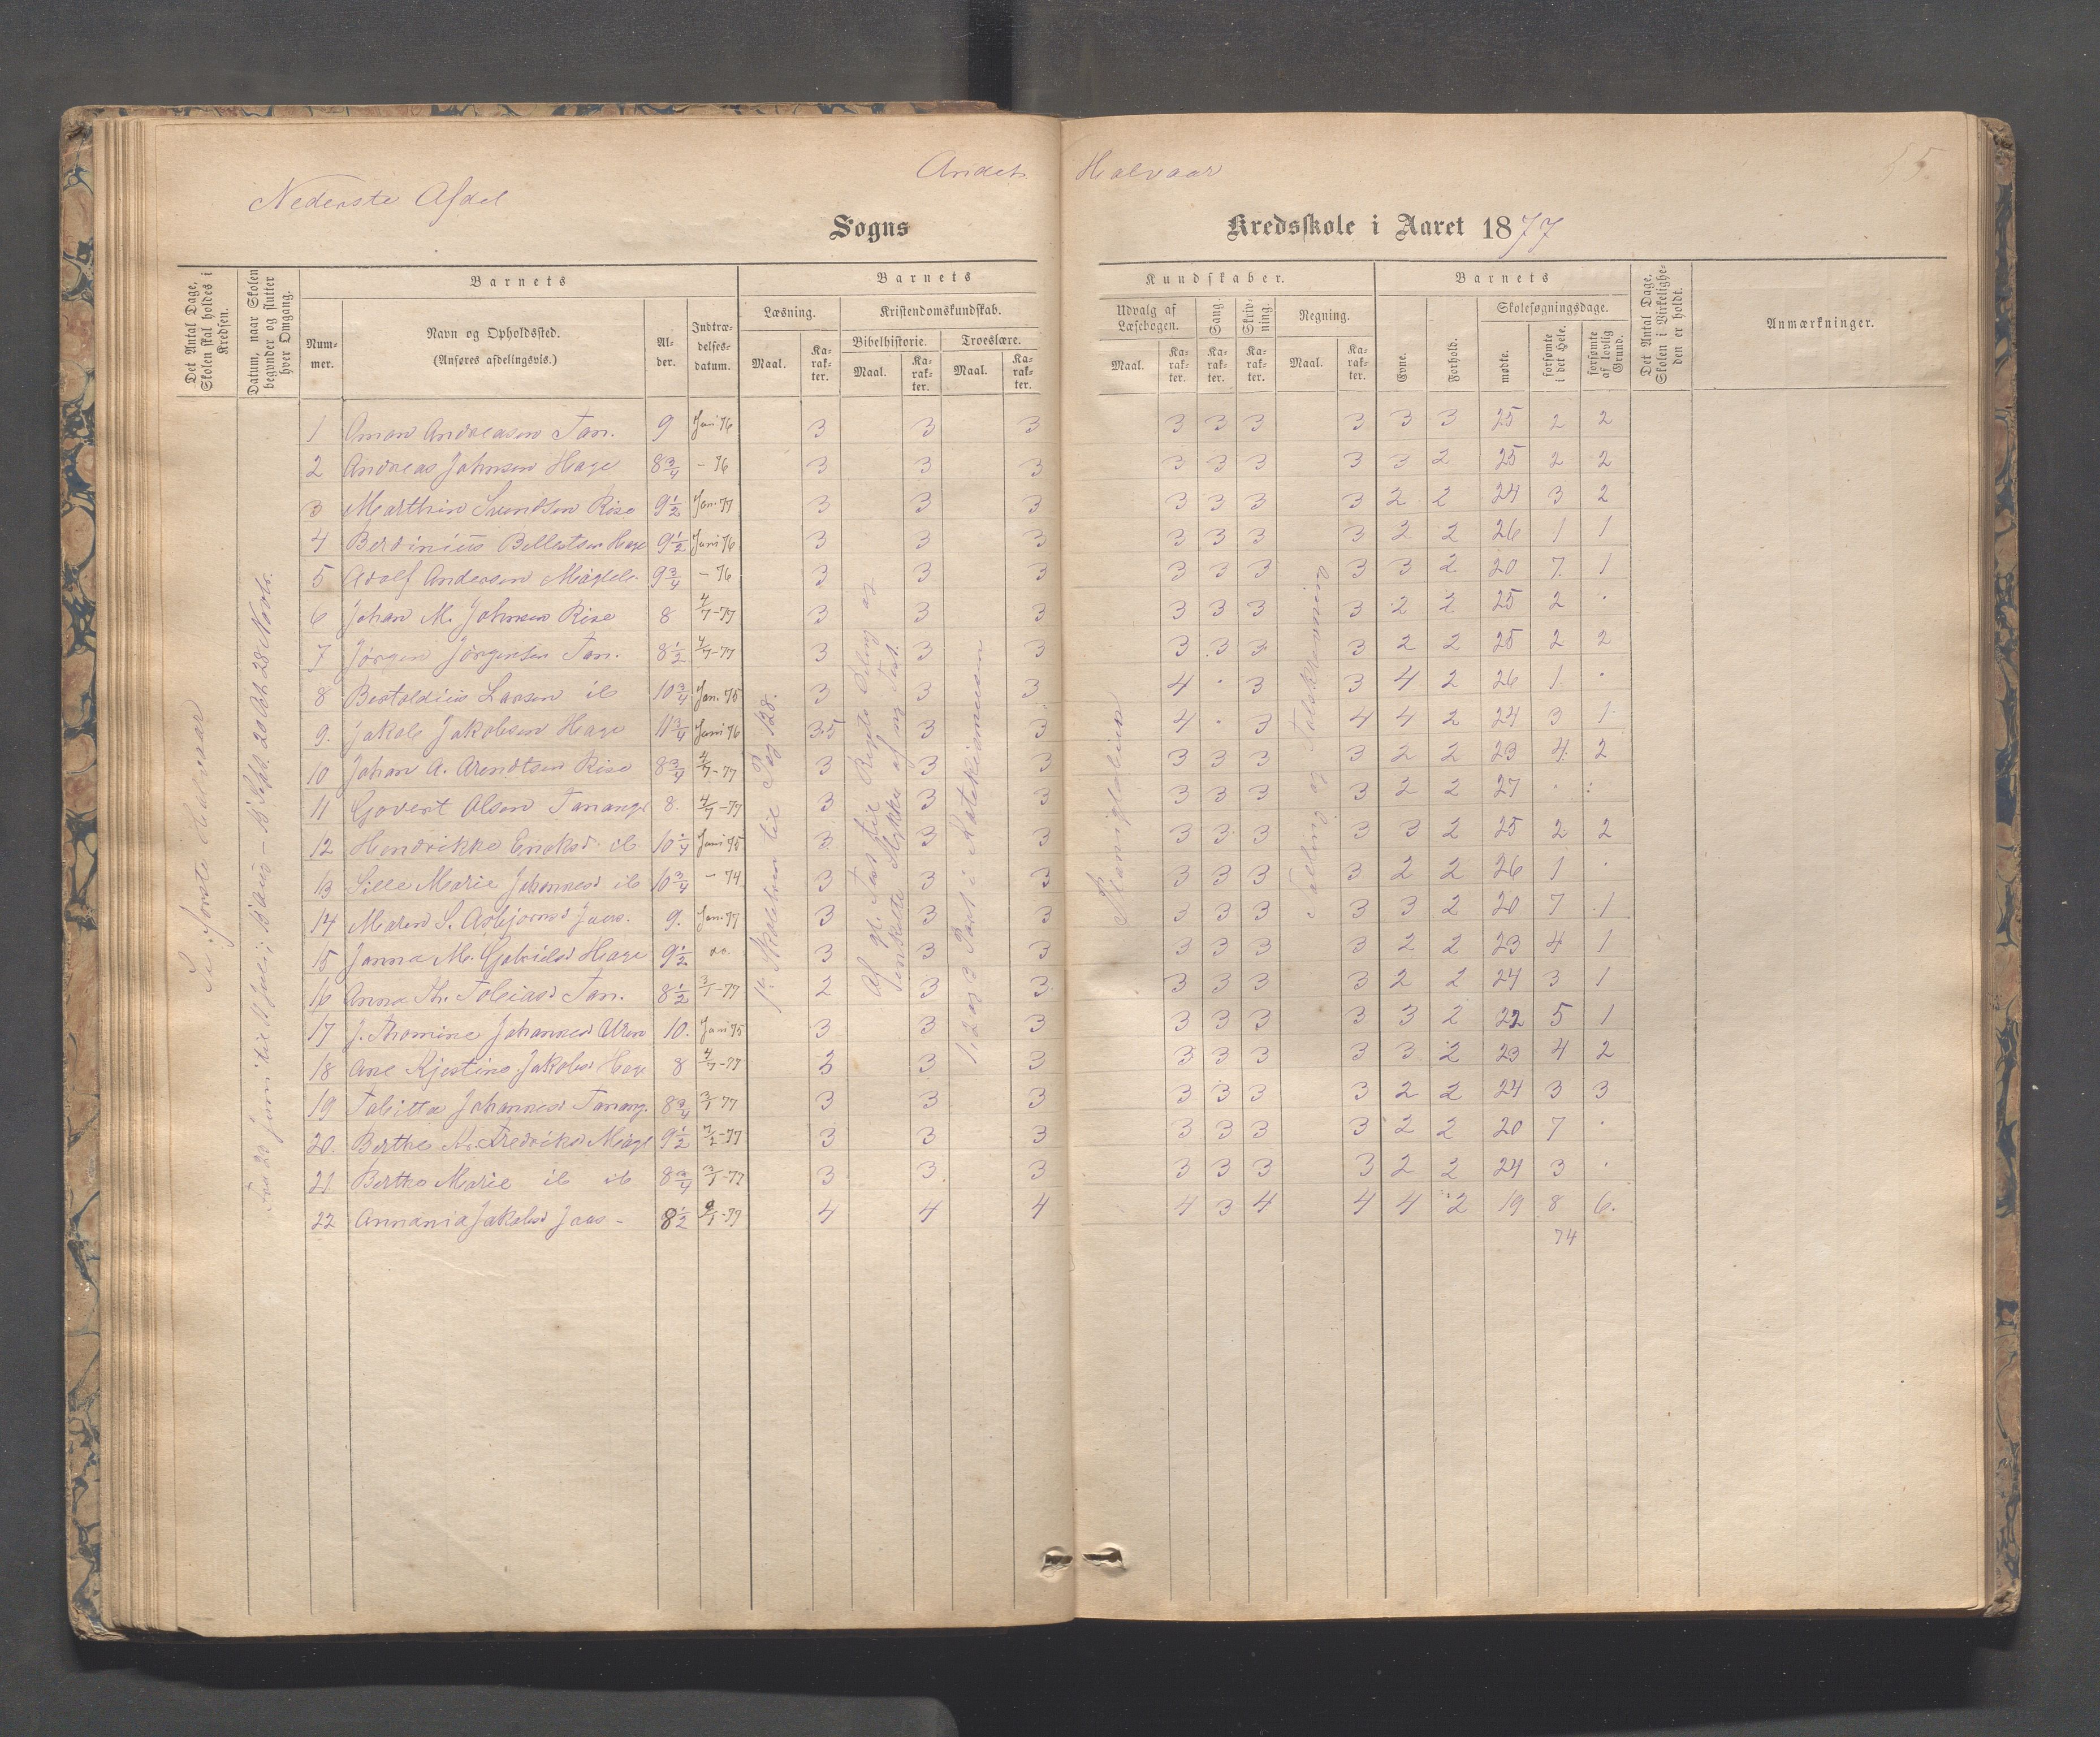 Andet Halvaar
Nederste Afdel
Sogns Kredsskole i Aaret 1877
Det Antal Dage, Skolen skal holdes i Kredsen.
Datum, naar Skolen begynder og slutter hver Omgang.
Barnets
Num-mer.
Navn og Opholdssted.
(Anføres afdelingsvis.)
Al-der.
Indtræ-delses-datum.
Barnets
Læsning.
Kristendomskundskab.
Bibelhistorie. Troeslære.
Maal. Ka-rak-ter. Maal. Ka-rak-ter. Maal. Ka-rak-ter.
Kundskaber.
Udvalg af Læsebogen. Sang. Skriv-ning. Regning.
Maal. Ka-rak-ter. Ka-rak-ter. Ka-rak-ter. Maal. Ka-rak-ter.
Barnets
Evne. Forhold. Skolesøgningsdage.
mødte. forsømte i det Hele. forsømte af lovlig Grund.
Det Antal Dage, Skolen i Virkelighe-den er holdt.
Anmærkninger.
Se første Halvaar
1 Andreasen Tan. 9 Juni 76 3 3 3 3 3 3 3 3 3 25 2 2
2 Andreas Johnsen Hage 8 3/4 – 76 3 3 3 3 3 3 3 3 2 25 2 2
3 Marthin Svendsen Rise 9 1/2 Jan. 77 3 3 3 3 3 3 3 2 2 24 3 2
4 Berdinius Hage 9 1/2 Juni 76 3 3 3 3 3 3 3 2 2 26 1 1
5 Adolf Andersen 9 3/4 – 76 3 3 3 3 3 3 3 3 2 20 7 1
6 Johan M. Johnsen Rise 8 4/7-77 3 3 3 3 3 3 3 2 2 25 2 .
7 Jørgen Jørgensen Tan. 8 1/2 4/7-77 3 3 3 3 3 3 3 2 2 25 2 2
8 Bertoldius Larsen ib 10 3/4 Jan. 75 3 3 3 4 . 3 3 4 2 26 1 .
9. Jakob Jakobsen Hage 11 3/4 Juni 76 3.5 3 3 4 . 3 4 4 2 24 3 1
10 Johan A. Arendtsen Rise 8 3/4 4/7-77 3 3 3 3 3 3 3 2 2 23 4 2
11 Govert Olsen Tananger 8. 4/7-77 3 3 3 3 3 3 3 2 2 27 . .
12 Hendrikke Eriksd. ib 10 1/4 Juni 75 3 3 3 3 3 3 3 3 2 25 2 2
13 Sille Marie Johannesd ib 10 3/4 – 74 3 3 3 3 3 3 3 2 2 26 1 .
14 Maren S. Asbjørnsd Jaas. 9. Jan. 77 3 3 3 3 3 3 3 3 2 20 7 1
15 Janna M. Gabrielsd Hage 9 1/2 do. 3 3 3 3 3 3 3 2 2 23 4 1
16 Anna Th. Tobiasd Tan. 8 1/2 3/1-77 2 3 3 3 3 3 3 2 2 24 3 1
17 J. Thomine Johannesd 10. Jan 75 3 3 3 3 3 3 3 3 2 22 5 1
18 Ane Kjestine Jakobsd Hage 8 4/7-77 3 3 3 3 3 3 3 3 2 23 4 2
19 Tabitta Johannesd Tanang. 8 3/4 3/1 77 3 3 3 3 3 3 3 2 2 24 3 3
20. Berthe Fredriksd 9 1/2 3 3 3 3 3 3 3 2 2 20 7 .
21 Berthe Marie ib ib 8 3/4 3/1-77 3 3 3 3 3 3 3 2 2 24 3 .
22 Annania Jakobsd Jaas – 8 1/2 4 4 4 4 3 4 4 4 2 19 8 6.
74
til Pag 128.
1, 2 og 3 Part i Katekismusen